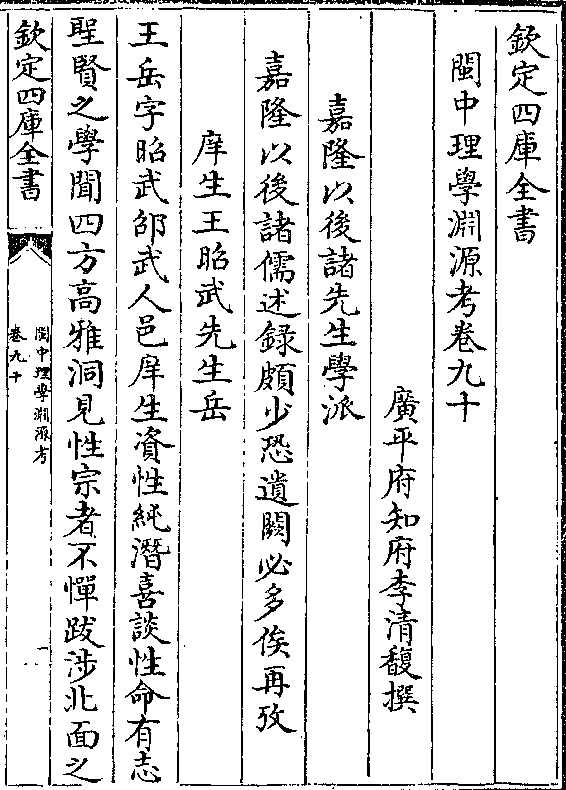 欽定四庫全書
閩中理學淵源考卷九十
廣平府知府李清馥撰
嘉隆以後諸先生學派
嘉隆以後諸儒述録頗少恐遺闕必多俟再攷
庠生王昭武先生岳
王岳字昭武邵武人邑庠生資性純潛喜談性命有志
聖賢之學聞四方高雅洞見性宗者不憚跋涉北面之
欽定四庫全書
閩中理學淵源考
卷九十
一